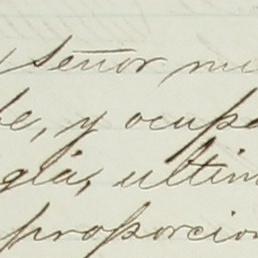 y señor mi
be, y ocupa
gía, ultim
proporcion